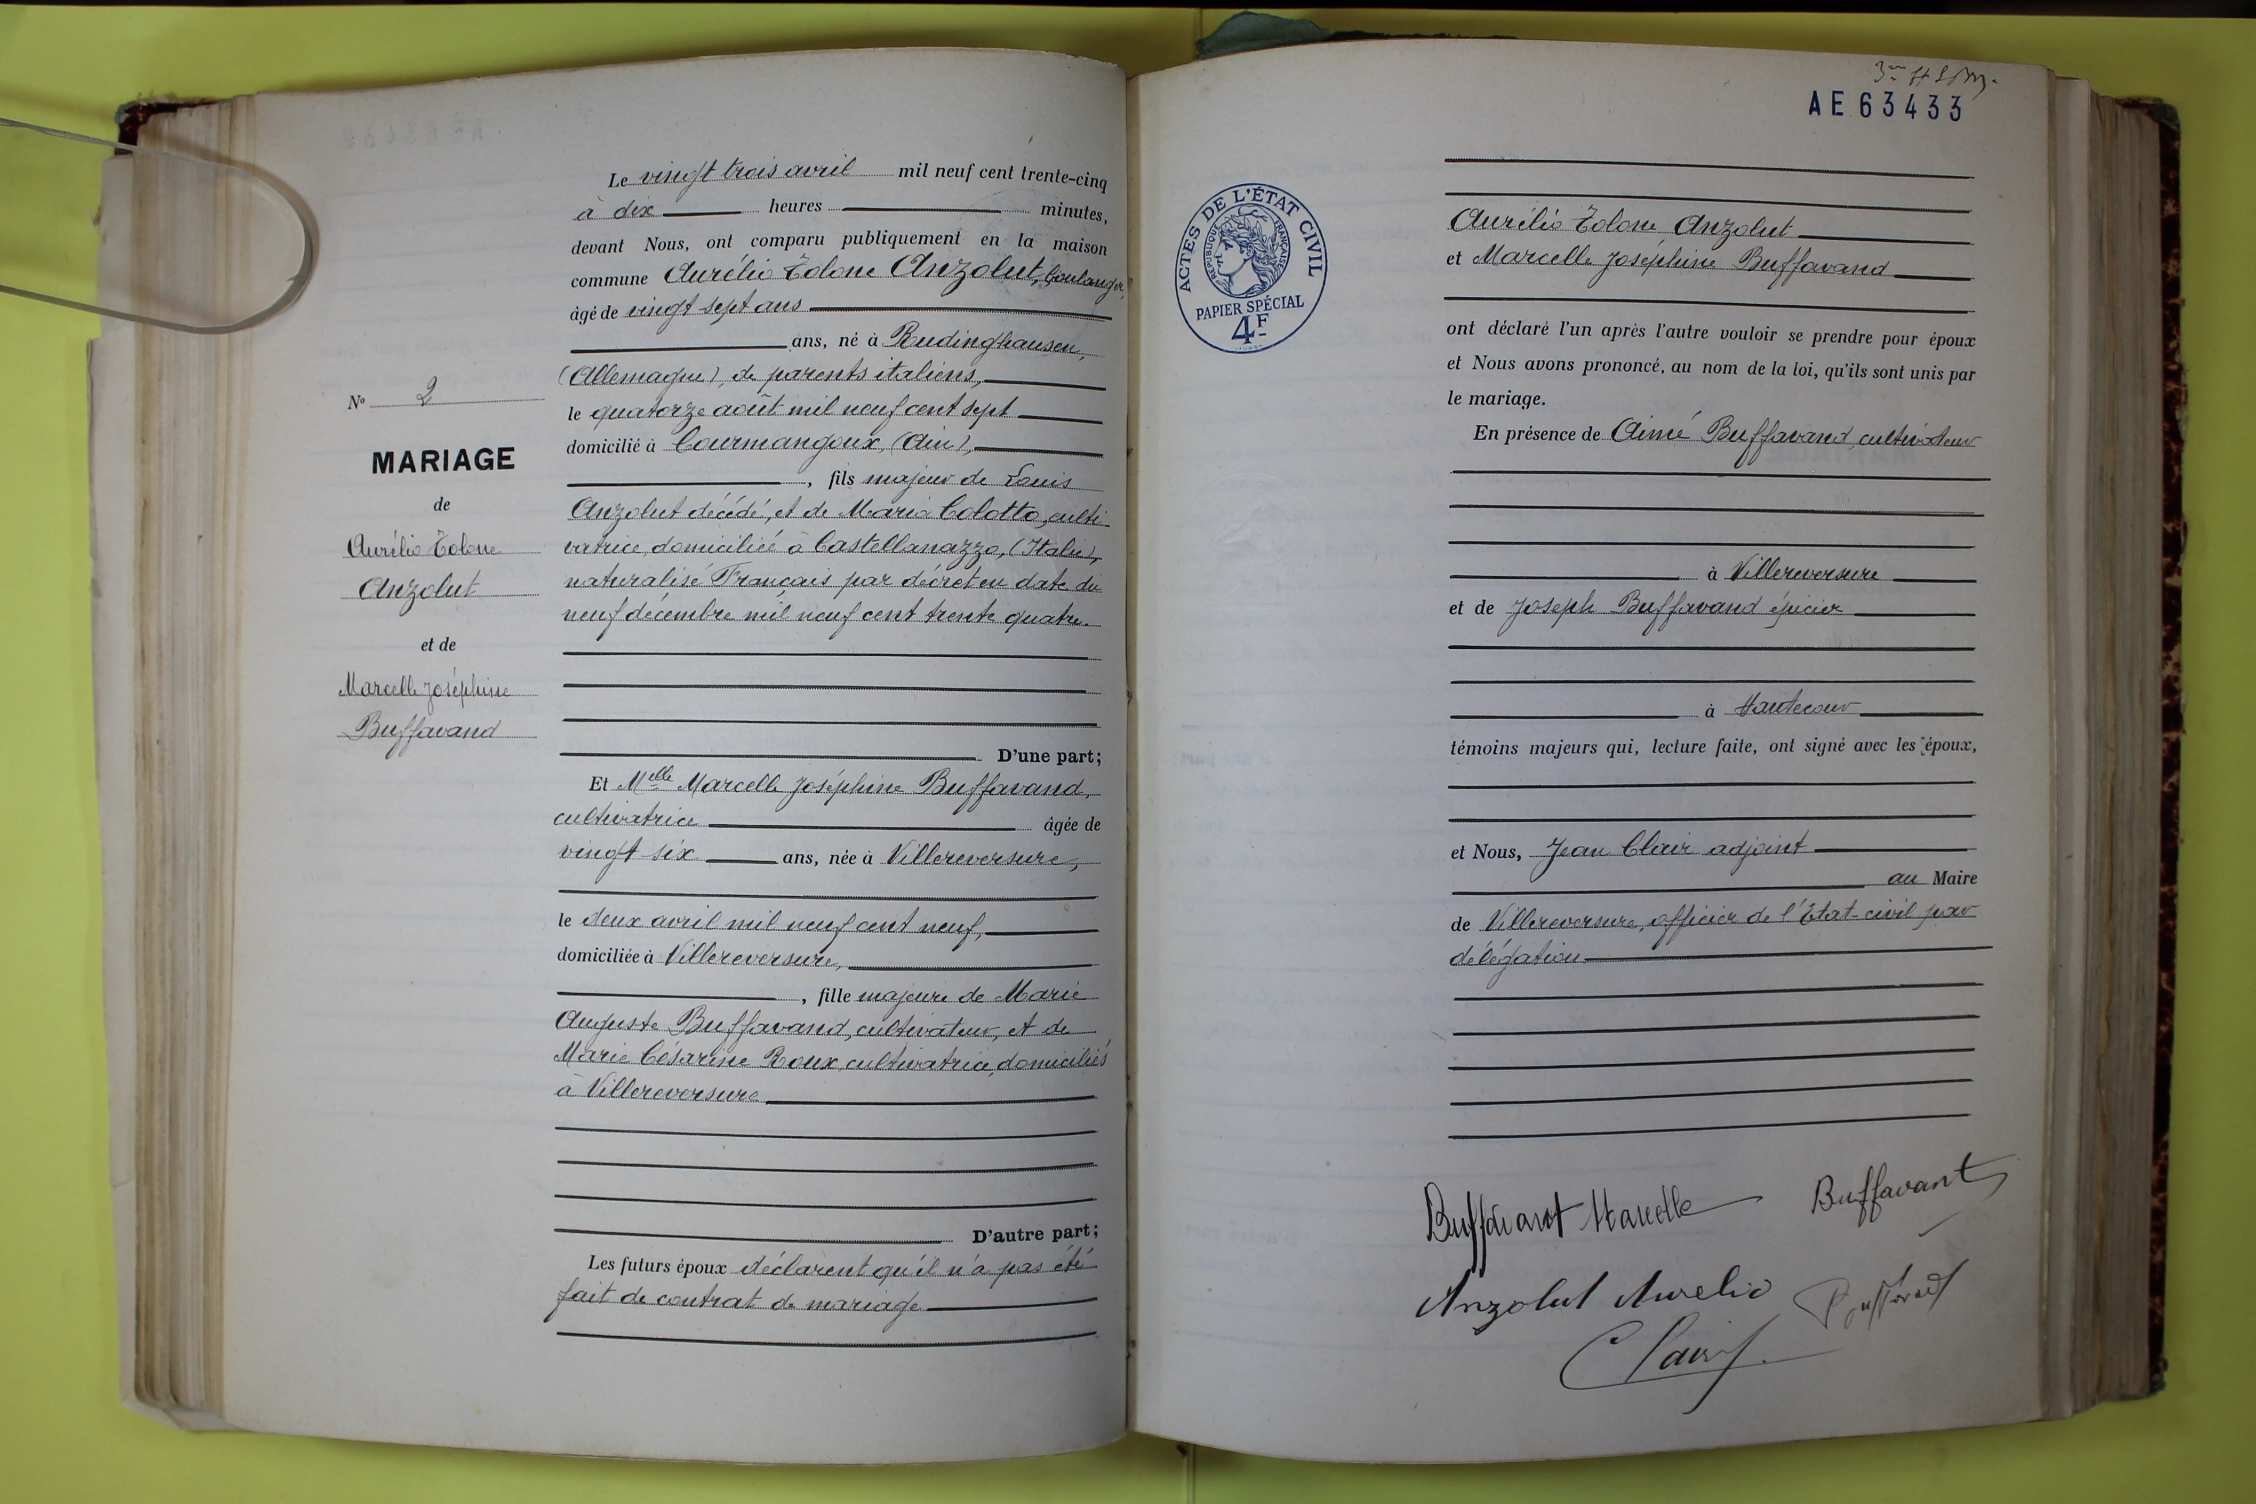 Le vingt trois avril mil neuf cent trente-cinq
à dix heures minutes,
devant Nous, ont comparu publiquement en la maison
commune Aurélio Tolone Anzolut, boulanger,
âgé de vingt sept ans
ans, né à Rudinghausen,
(Allemagne), de parents italiens,
le quatorze août mil neuf cent sept
domicilié à Courmangoux, (Ain),
, fils majeur de Louis
Anzolut décédé, et de Maria Colotto, culti-
vatrice, domiciliée à Castellanazzo, (Italie),
naturalisé Français par décret en date du
neuf décembre mil neuf cent trente quatre.
D'une part;
Et Melle Marcelle Joséphine Buffavand,
cultivatrice âgée de
vingt six ans, née à Villereversure,
le deux avril mil neuf cent neuf,
domiciliée à Villereversure,
, fille majeure de Marie
Auguste Buffavand, cultivateur, et de
Marie Césarine Roux, cultivatrice, domiciliés
à Villereversure
D'autre part;
Les futurs époux déclarent qu'il n'a pas été
fait de contrat de mariage
No 2
MARIAGE
de
Aurélio Tolone
Anzolut
et de
Marcelle Joséphine
Buffavand
AE 63433
ACTES DE L'ÉTAT CIVIL
RÉPUBLIQUE FRANÇAISE
PAPIER SPÉCIAL
4F
Aurélio Tolone Anzolut
et Marcelle Joséphine Buffavand
ont déclaré l'un après l'autre vouloir se prendre pour époux
et Nous avons prononcé, au nom de la loi, qu'ils sont unis par
le mariage.
En présence de Aimé Buffavand, cultivateur
à Villereversure
et de Joseph Buffavand épicier
à Hautecour
témoins majeurs qui, lecture faite, ont signé avec les époux,
et Nous, Jean Clair adjoint
au Maire
de Villereversure, officier de l'Etat-civil par
délégation
Buffavant Marcelle Buffavant
Anzolut Aurelio Buffavand
Clair